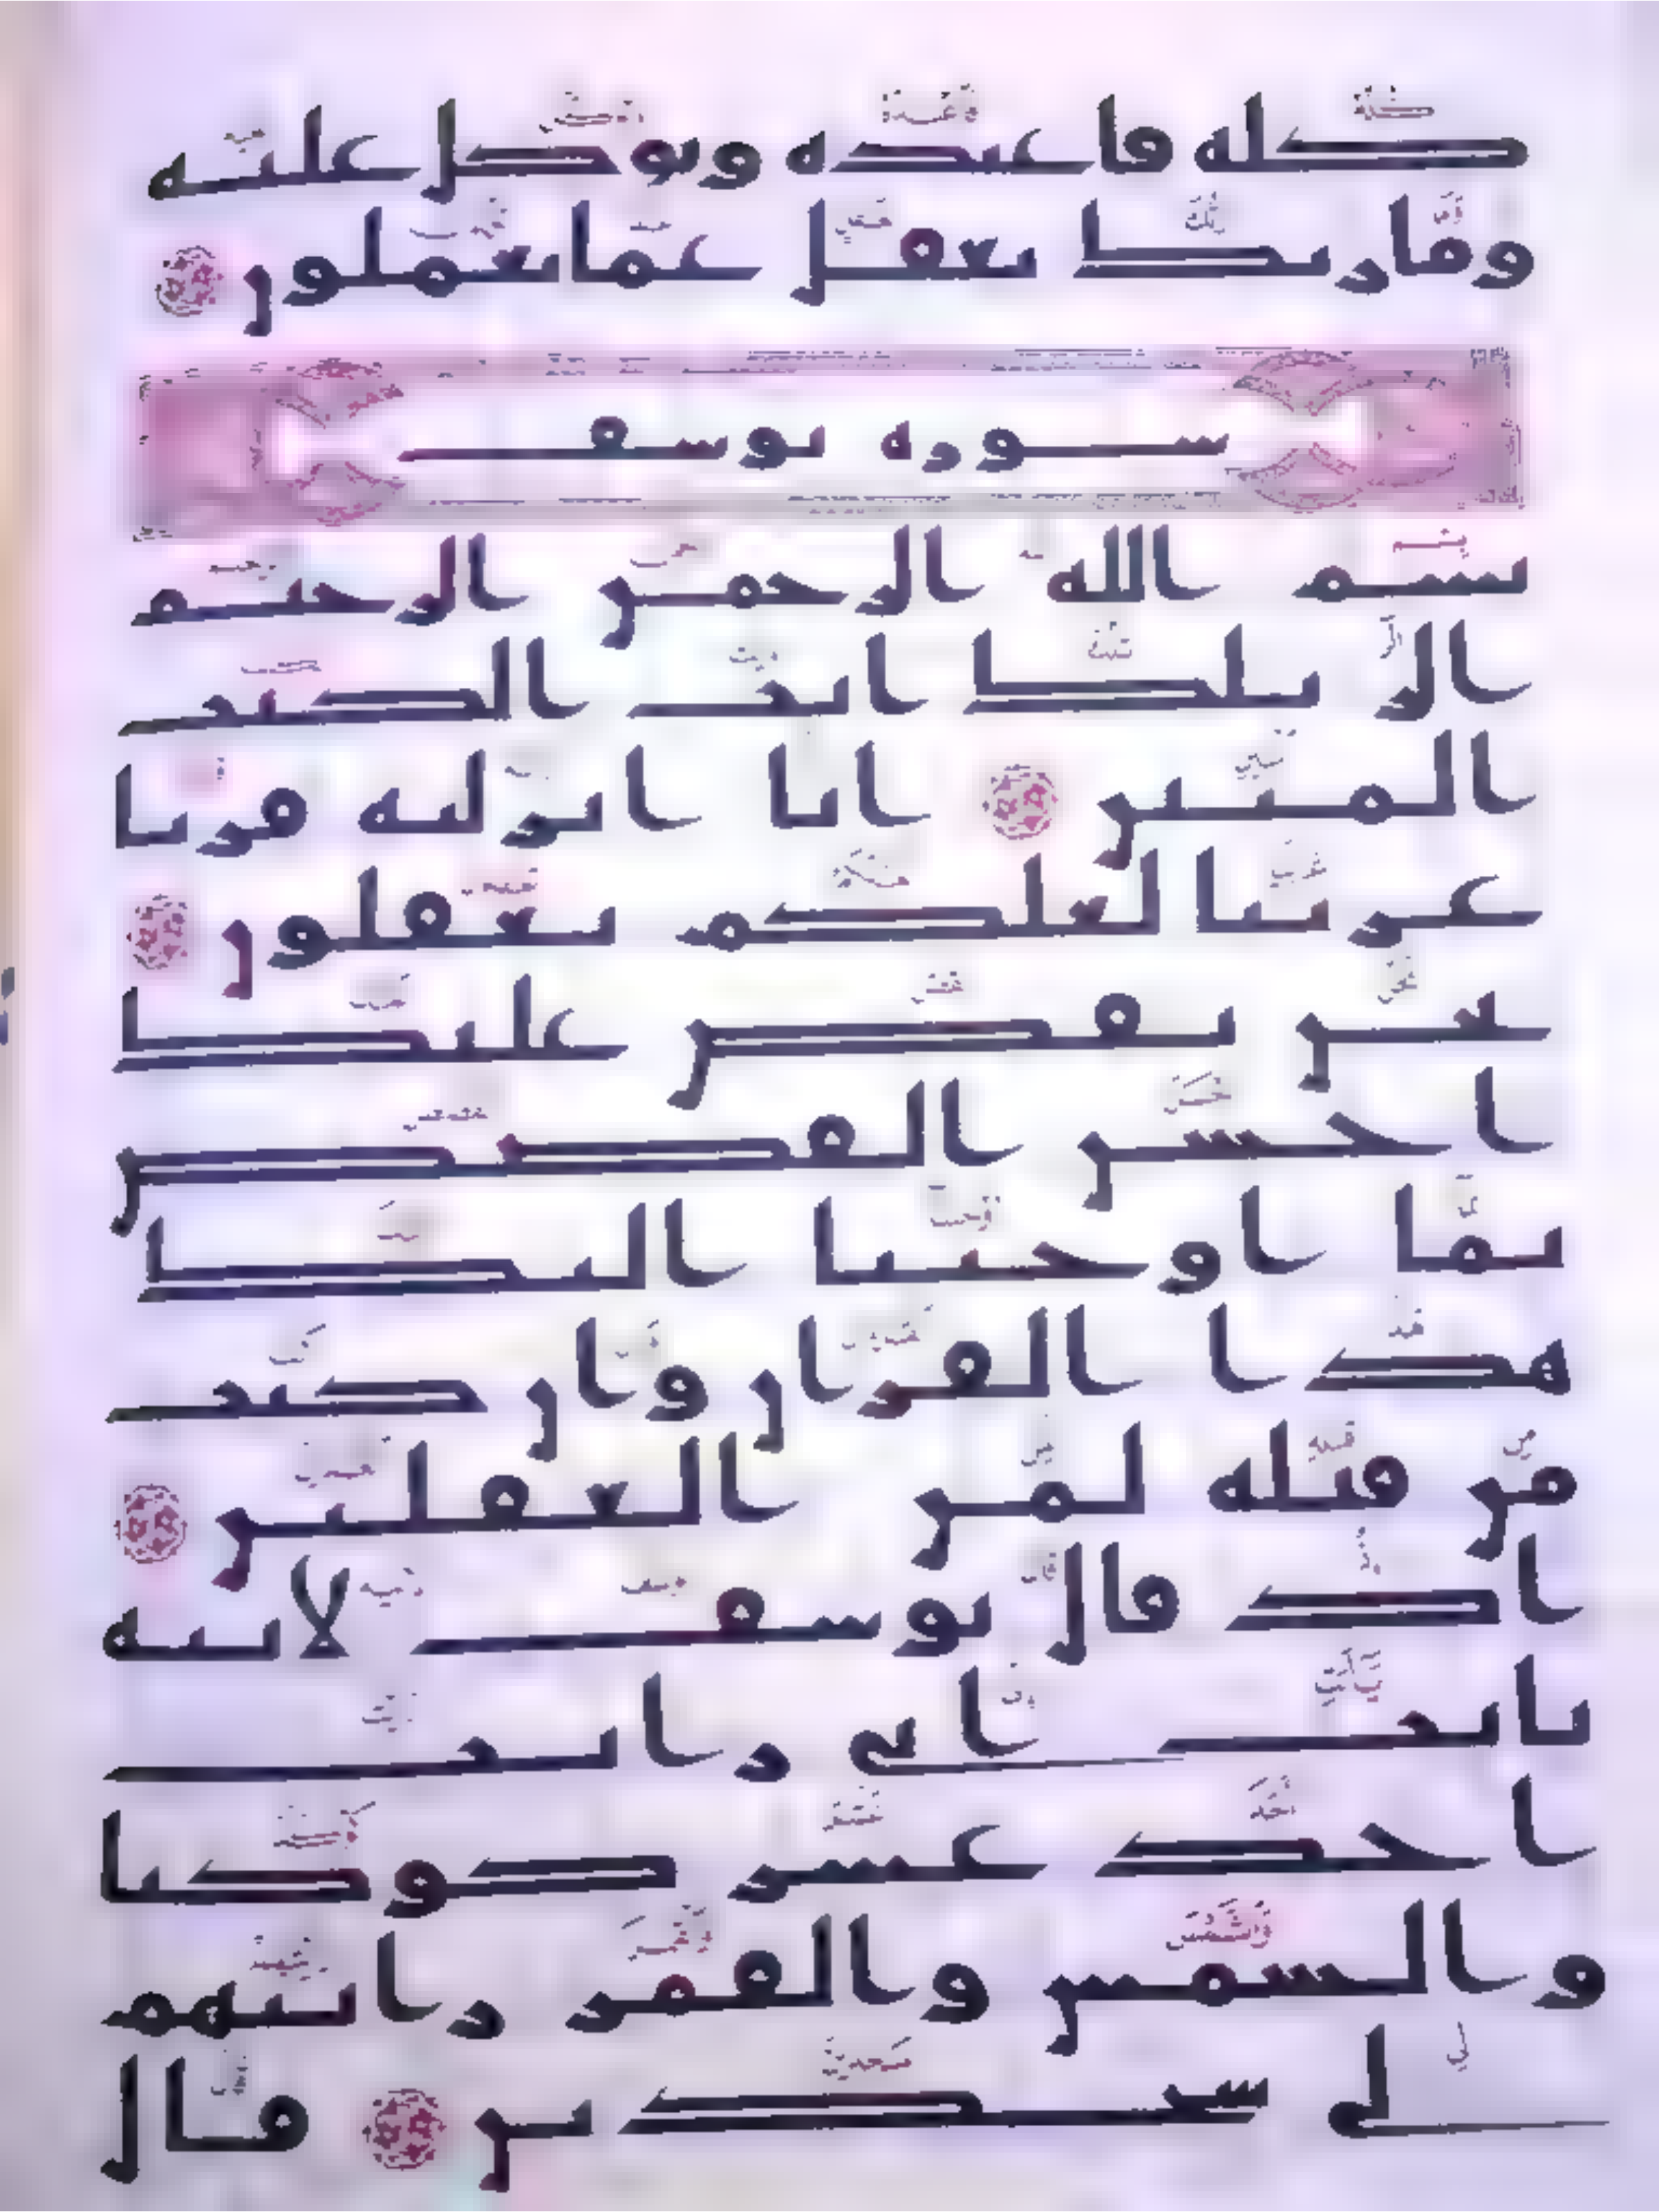 كله فاعبده وتوكل عليه
وما ربك بغفل عما تعملون
سورة يوسف
بسم الله الرحمن الرحيم
الر تلك ايت الكتب
المبين انا انزلنه قرنا
عربيا لعلكم تعقلون
نحن نقص عليك
احسن القصص
بما اوحينا اليك
هذا القران وان كنت
من قبله لمن الغفلين
اذ قال يوسف لابيه
يابت اني رايت
احد عشر كوكبا
والشمس والقمر رايتهم
لي سجدين قال